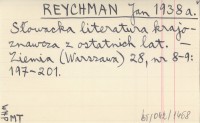 REYCHMAN Jan 1938 a.
Słowacka literatura krajo-
znawcza z ostatnich lat. –
Ziemia (Warszawa) 28, nr 8-9:
197-201.
MT